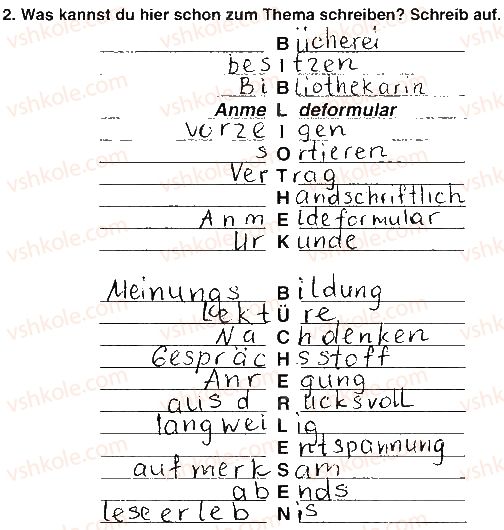 2. Was kannst du hier schon zum Thema schreiben? Schreib auf.
Bücherei
besItzen
BiBliothekarin
Anme L deformular
vorzeIgen
sOrtieren
VerTrag
Handschriftlich
AnmEldeformular
UrKunde
MeinungsBildung
lektÜre
NaChdenken
GespräcHsstoff
AnrEgung
ausdRucksvoll
langweiLig
Entspannung
aufmerkSam
abEnds
leseerlebNis